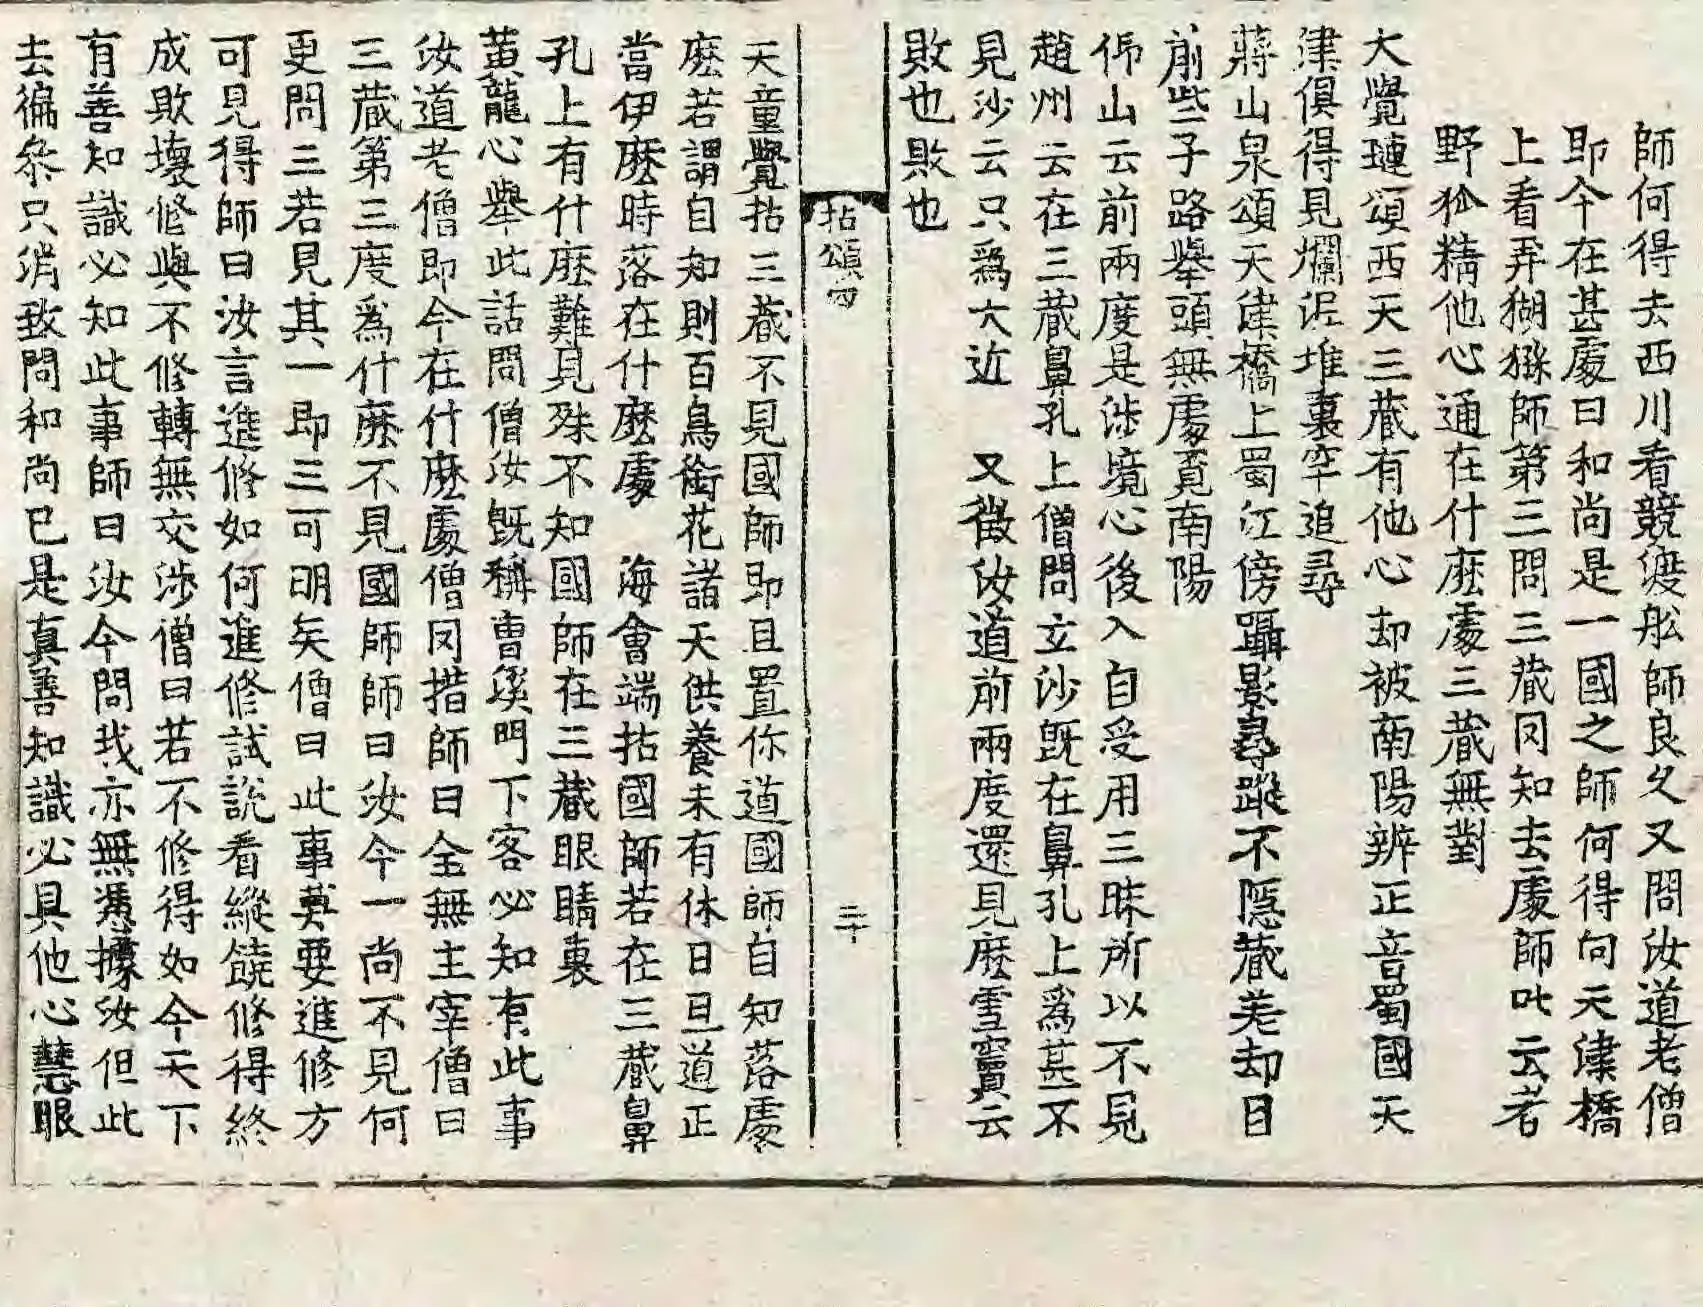 師何得去西川看競渡舩師良久又問汝道老僧
即今在甚處曰和尚是一國之師何得向天津橋
上看弄猢猻師第三問三藏罔知去處師叱云者
野狐精他心通在什麽處三藏無對
大覺璉頌西天三藏有他心却被南陽辨正音蜀國天
津俱得見爛泥堆裏空追尋
蔣山泉頌天津橋上蜀江傍躡影尋蹤不隱藏差却目
前些子路擧頭無處覓南陽
仰山云前兩度是涉境心後入自受用三昧所以不見
趙州云在三藏鼻孔上僧問玄沙旣在鼻孔上爲甚不
見沙云只爲大近 又徵汝道前兩度還見麽雪竇云
敗也敗也
拈頌四
二十
天童覺拈三藏不見國師即且置你道國師自知落處
麽若謂自知則百鳥銜花諸天供養未有休日且道正
當伊麽時落在什麽處 海會端拈國師若在三藏鼻
孔上有什麽難見殊不知國師在三藏眼睛裏
黃龍心擧此話問僧汝旣稱曹溪門下客必知有此事
汝道老僧即今在什麽處僧罔措師曰全無主宰僧曰
三藏第三度爲什麽不見國師師曰汝今一尚不見何
更問三若見其一即三可明矣僧曰此事莫要進修方
可見得師曰汝言進修如何進修試說看縱饒修得終
成敗壞修與不修轉無交涉僧曰若不修得如今天下
有善知識必知此事師曰汝今問我亦無憑據汝但此
去徧叅只消致問和尚已是眞善知識必具他心慧眼